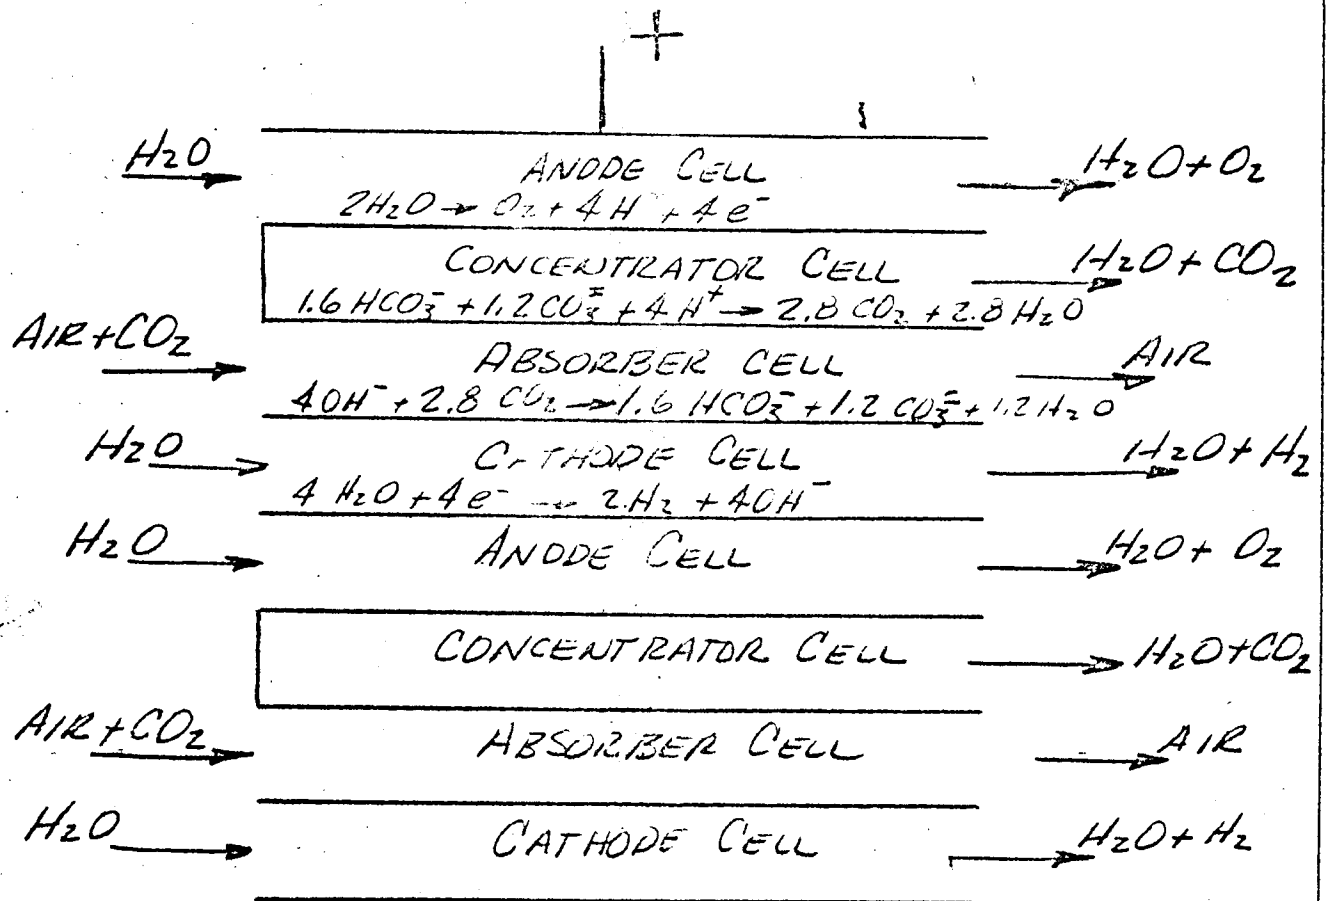 +
H₂O ANODE CELL H₂O + O₂
2H₂O → O₂ + 4H⁻ + 4e⁻
CONCENTRATOR CELL H₂O + CO₂
1.6 HCO₃⁻ + 1.2 CO₃⁼ + 4H⁺ → 2.8 CO₂ + 2.8 H₂O
AIR + CO₂ ABSORBER CELL AIR
4OH⁻ + 2.8 CO₂ → 1.6 HCO₃⁻ + 1.2 CO₃⁼ + 1.2 H₂O
H₂O CATHODE CELL H₂O + H₂
4 H₂O + 4e⁻ → 2H₂ + 4OH⁻
H₂O ANODE CELL H₂O + O₂
CONCENTRATOR CELL H₂O + CO₂
AIR + CO₂ ABSORBER CELL AIR
H₂O CATHODE CELL H₂O + H₂